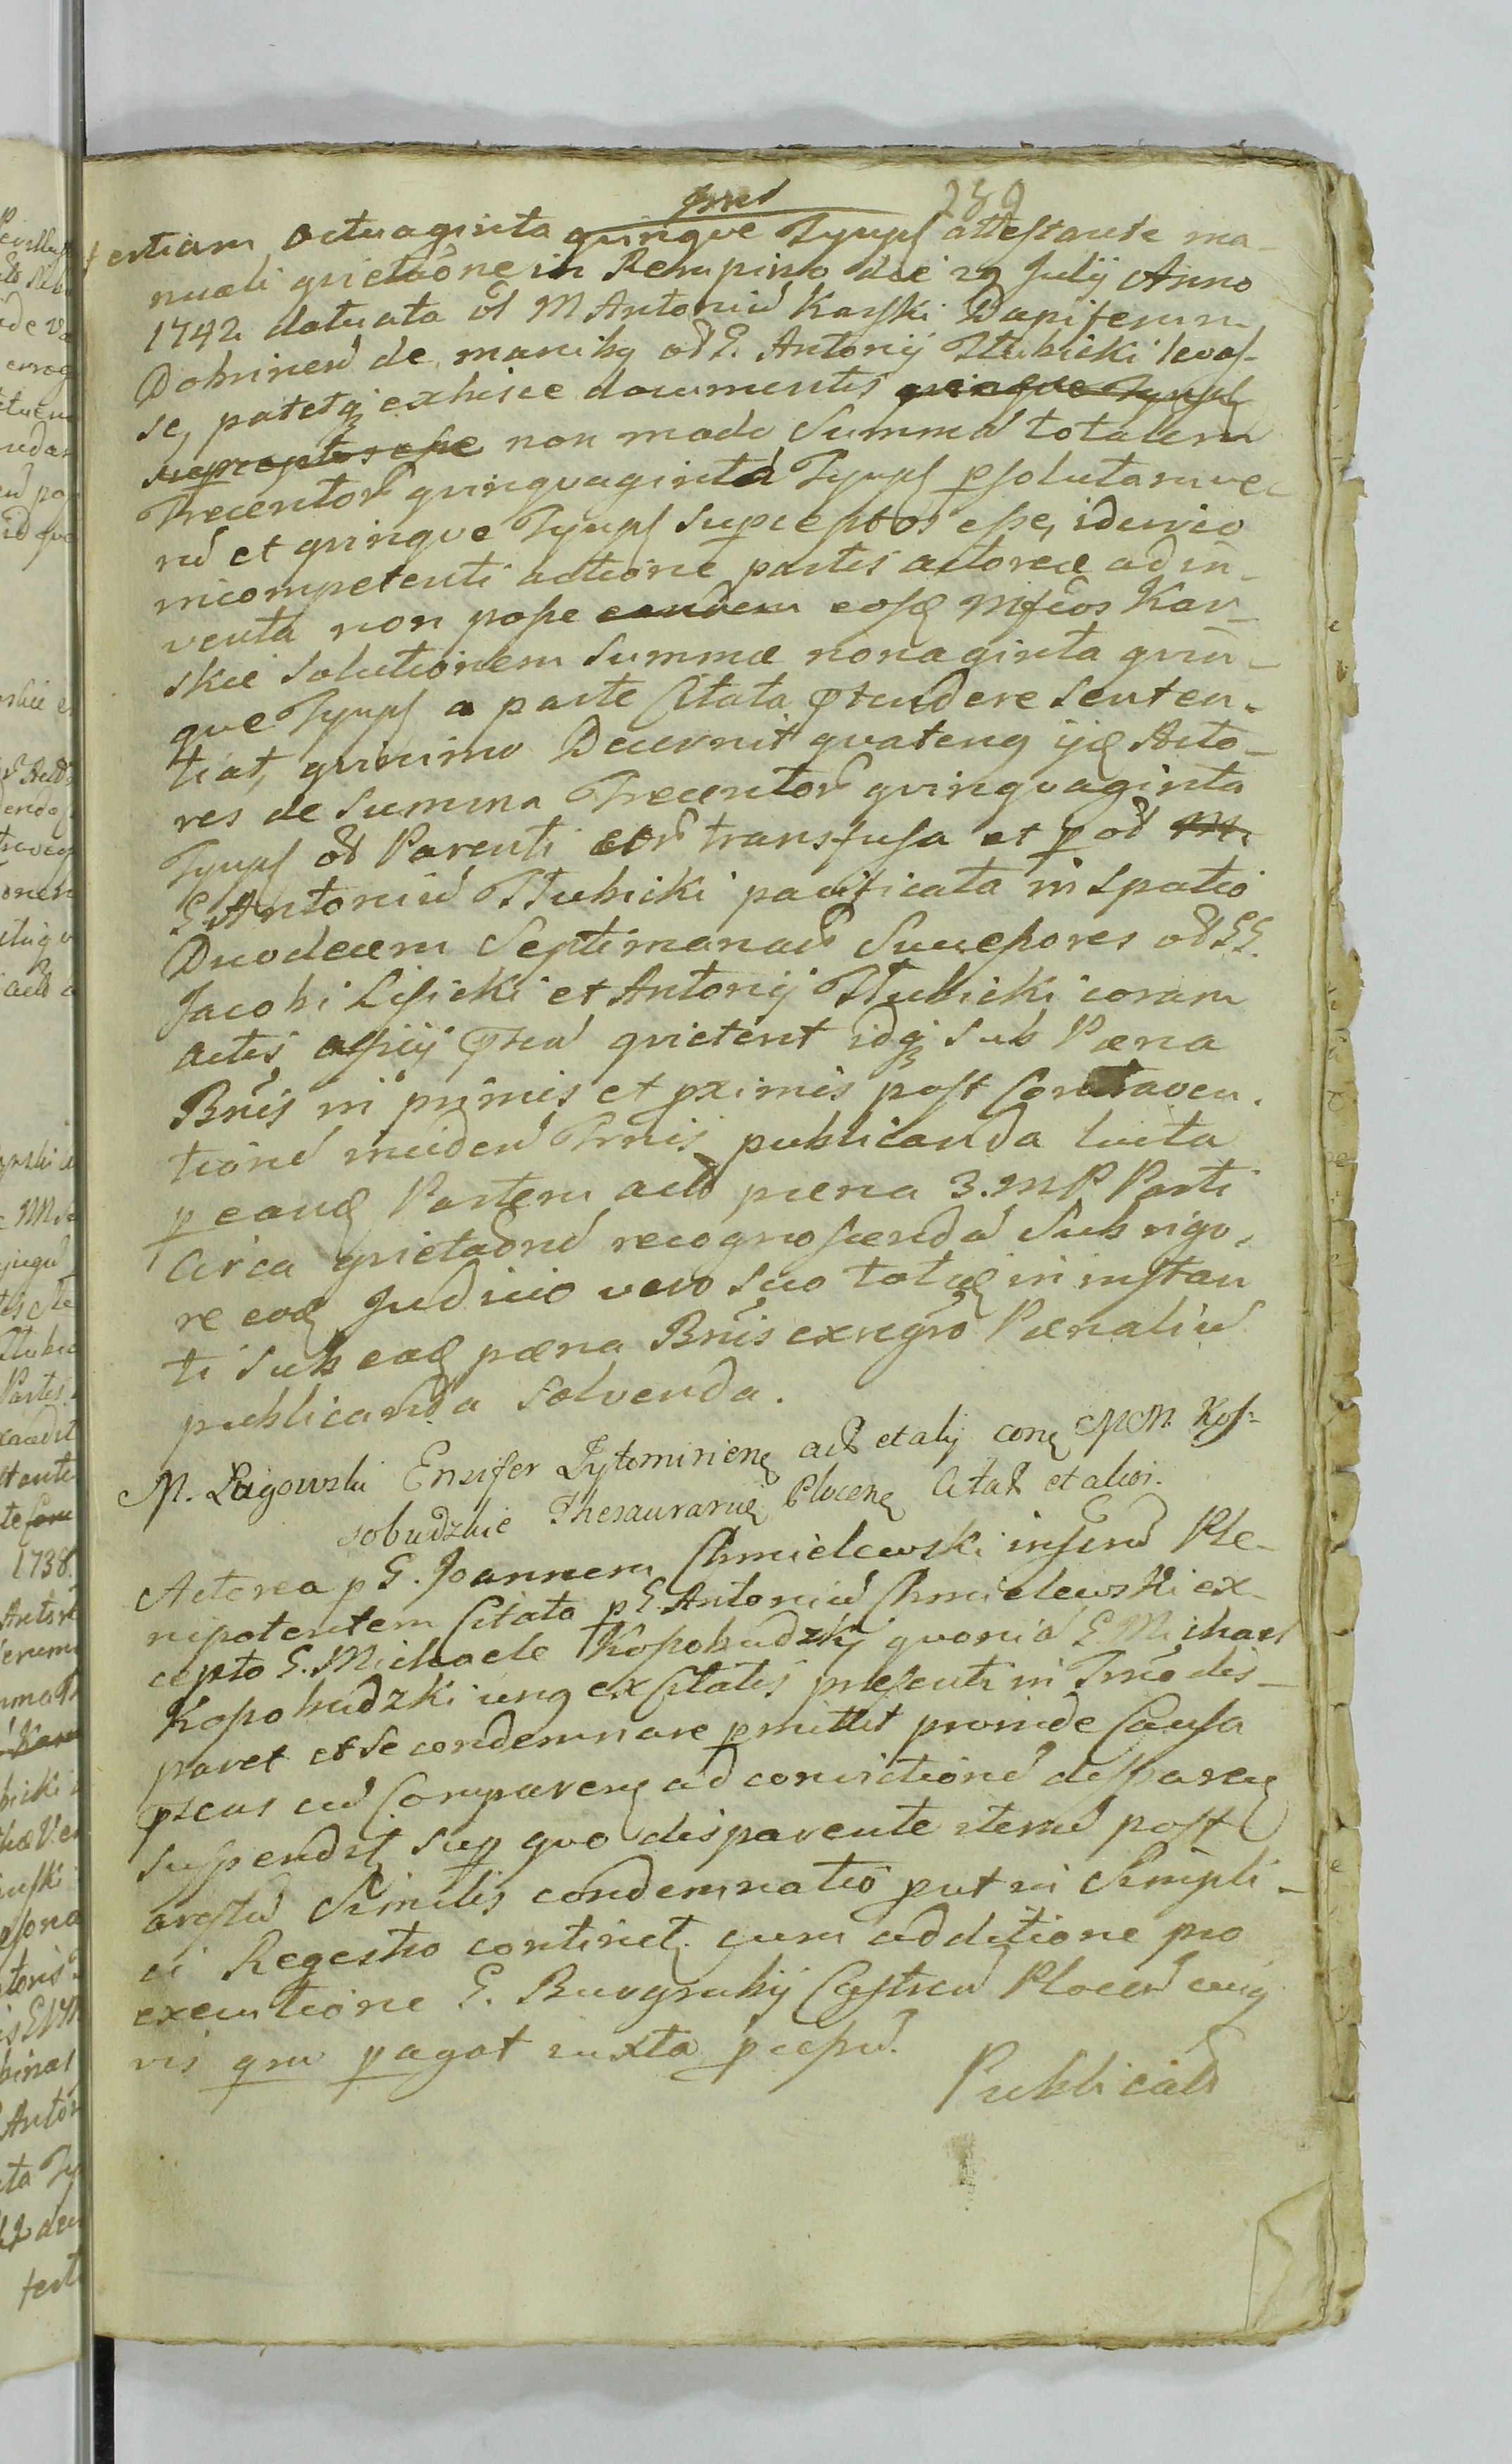 259
tres
tertiam octuaginta quinque Tynph attestante ma-
nuali quietaõne in Rempino die 29 Julij Anno
1742 datuata ol M Antoniu Karski Dapiferum
Dobrinen de manibq ol G. Antonij Dłubicki levas-
se, patetq exhisce documentis quinque Tynph
supceptos esse non modo Summa totalem
Trecentor quinquaginta Tynph psolutam ve-
ru et quinque Tynph Supceptos esse, iduirco
incompetenti actione partis actoreæ ad in-
venta non posse eandem eosd Mfcos Kar-
skie Solutionem Summæ nonaginta quin-
que Tynph a parte Citata ptendere Senten-
tiat, quinimo Decernit quatenq ijd Acto-
res de Summa Trecentor quinquaginta
Tynph ol Parenti eor transfusa et p ol M.
G. Antoniu Dłubicki pacificata in spatio
Duodecem Septimanar Successores ol GG.
Jacobi Lisicki et Antonij Dłubicki coram
actis officij Pntu quietent idq Sub Pæna
Bnis in primis et pximis post Contraven-
tione inciden Trnis publicanda luita
p eand Partem act pæna 3. MP Parti
Circa quietaone recognoscenda Sub rigo-
re eod Judicio vero suo totid in instan
ti Sub ead pæna Bnis exregro Pænaliu
publicanda Solvenda.
M. Rigowski Ensifer Zytomirien act et alij con MM. Kos-
sobudzkie Thesaurarie Plocen Citat et alios.
Actorea p G. Joannem Chmielewski inferu Ple-
nipotentem Citata p G. Antoniu Chmielewski ex-
cepto G. Michaele Kosobudzki quonia G. Michael
Kosobudzki unq ex Citatis presenti in Trno dis-
paret et Se condemnare pmittit proinde Causa
pteus cu Comparen ad convictione disparen
suspendit Sup quo disparente iteru post
arestu Similis condemnatio put in Simpli-
ci Regestro continet. cum additione pro
executione G. Burgrabij Castren Plocen cuiq
vis qru pagat iuxta pcepu.
Publicat